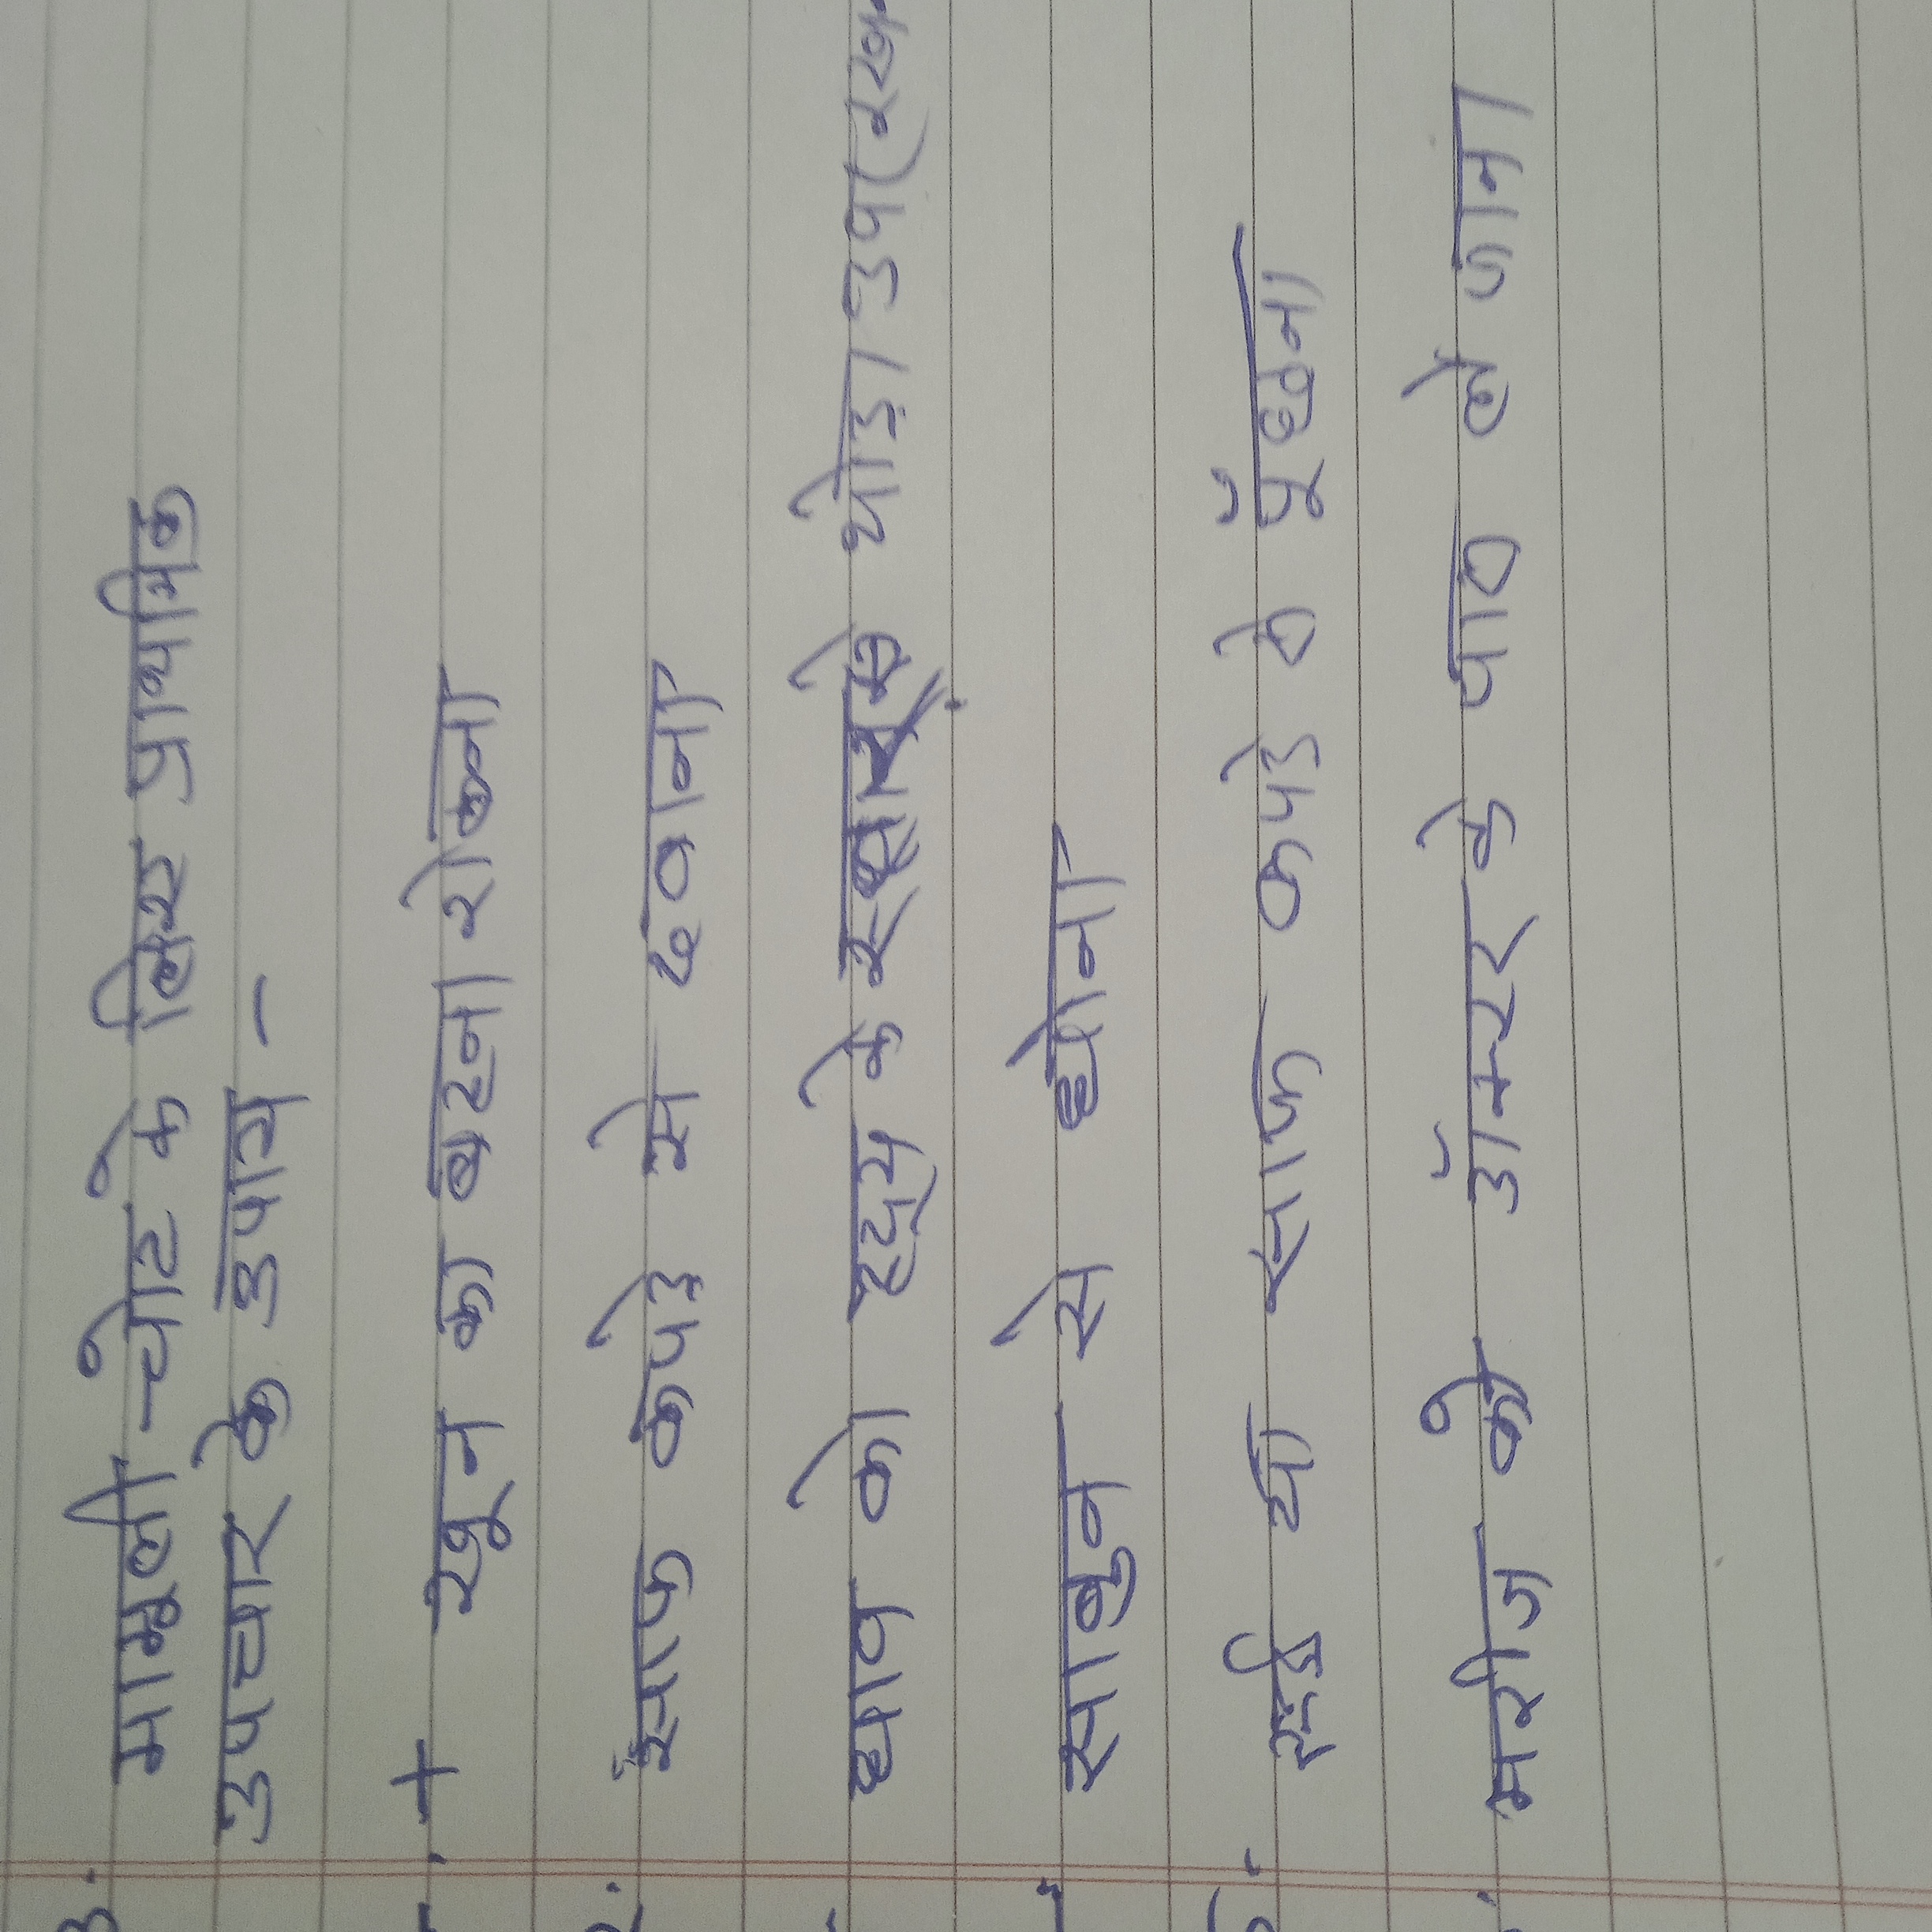 3. मामूली चोट के लिए प्राथमिक
उपचार के उपाय -
+ खून का बहना रोकना
2. साफ कपड़े से दबाना
घाव को हृदय के स्तर से थोड़ा उपर रख
साबुन से धोना
5. रूई या साफ कपड़े से पूँछना
मरीज को डॉक्टर के पास ले जाना